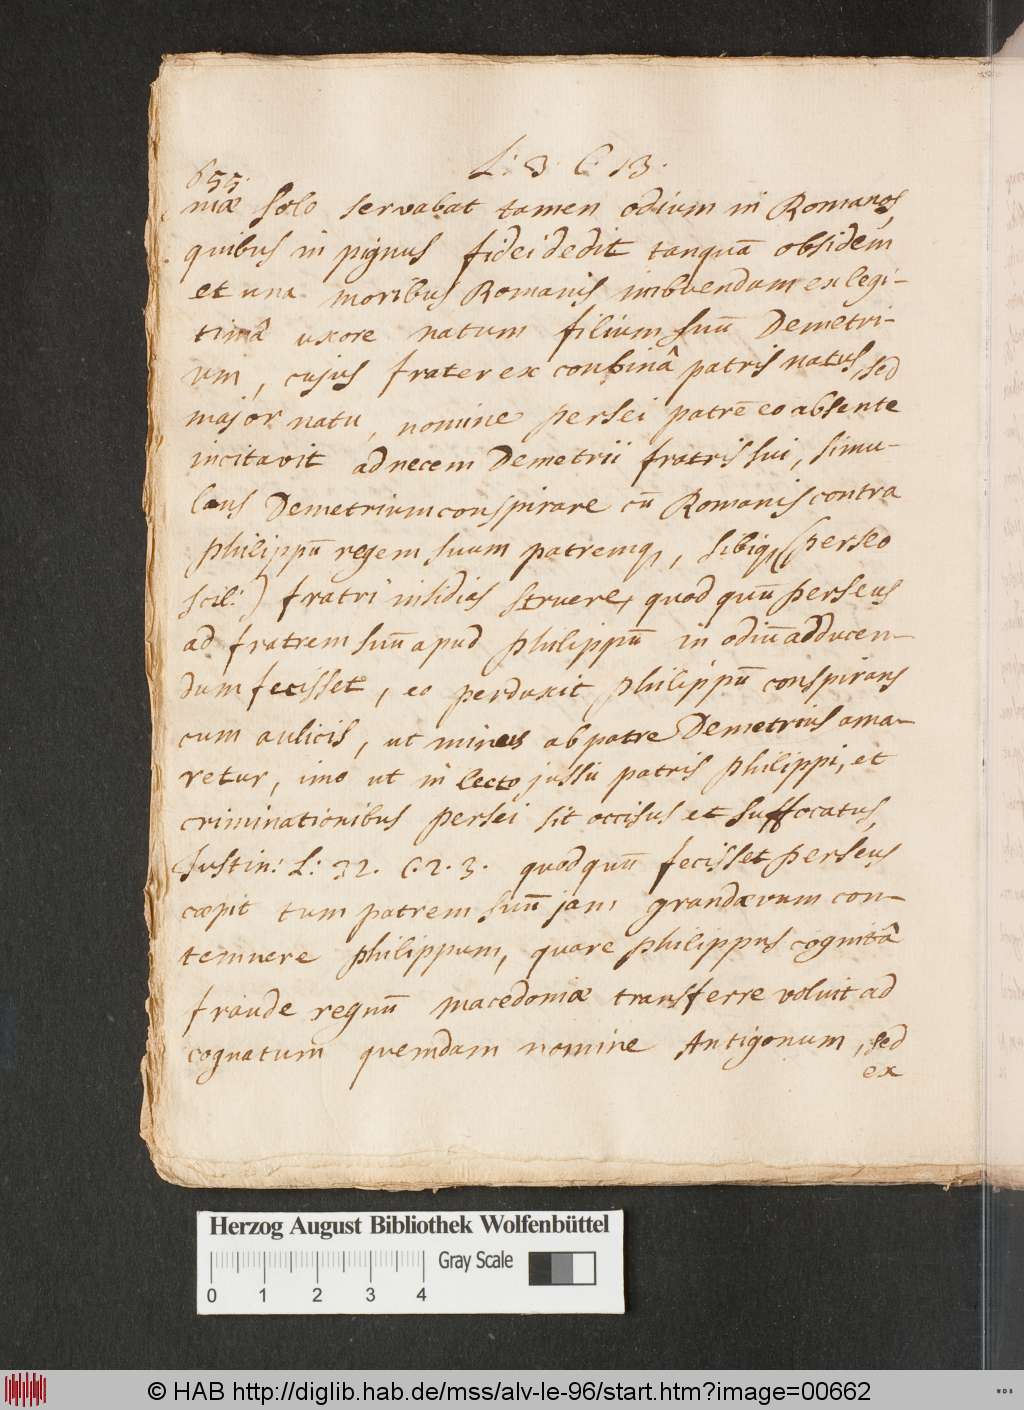 655.
L: 3 C 13.
niæ solo servabat tamen odium in Romanos,
quibus in pignus fidei dedit tanquã obsidem
et una moribus Romanis imbuendum ex legi-
timâ uxore natum filium suũ Demetri-
um, cujus frater ex conbinâ patris natus, sed
major natu, nomine Persei patrẽ eo absente
incitavit ad necem Demetrii fratris sui, simu-
lans Demetrium conspirare cũ Romanis contra
Philippũ regem suum patremq, sibiq (Perseo
scil:) fratri insidias struere, quod quũ Perseus
ad fratrem suũ apud Philippũ in odiũ adducen-
dum fecisset, eo perduxit Philippũ conspirans
cum aulicis, ut minus ab patre Demetrius ama-
retur, imo ut in lecto jussu patris Philippi, et
criminationibus Persei sit occisus et suffocatus,
Justin: L: 32. C. 2. 3. quod quũ fecisset Perseus
cæpit tum patrem suũ jam grandævum con-
temnere Philippum, quare Philippus cognitâ
fraude regnũ Macedoniæ transferre voluit ad
cognatum quemdam nomine Antigonum, sed
ex
Herzog August Bibliothek Wolfenbüttel
Gray Scale
0 1 2 3 4
© HAB http://diglib.hab.de/mss/alv-le-96/start.htm?image=00662